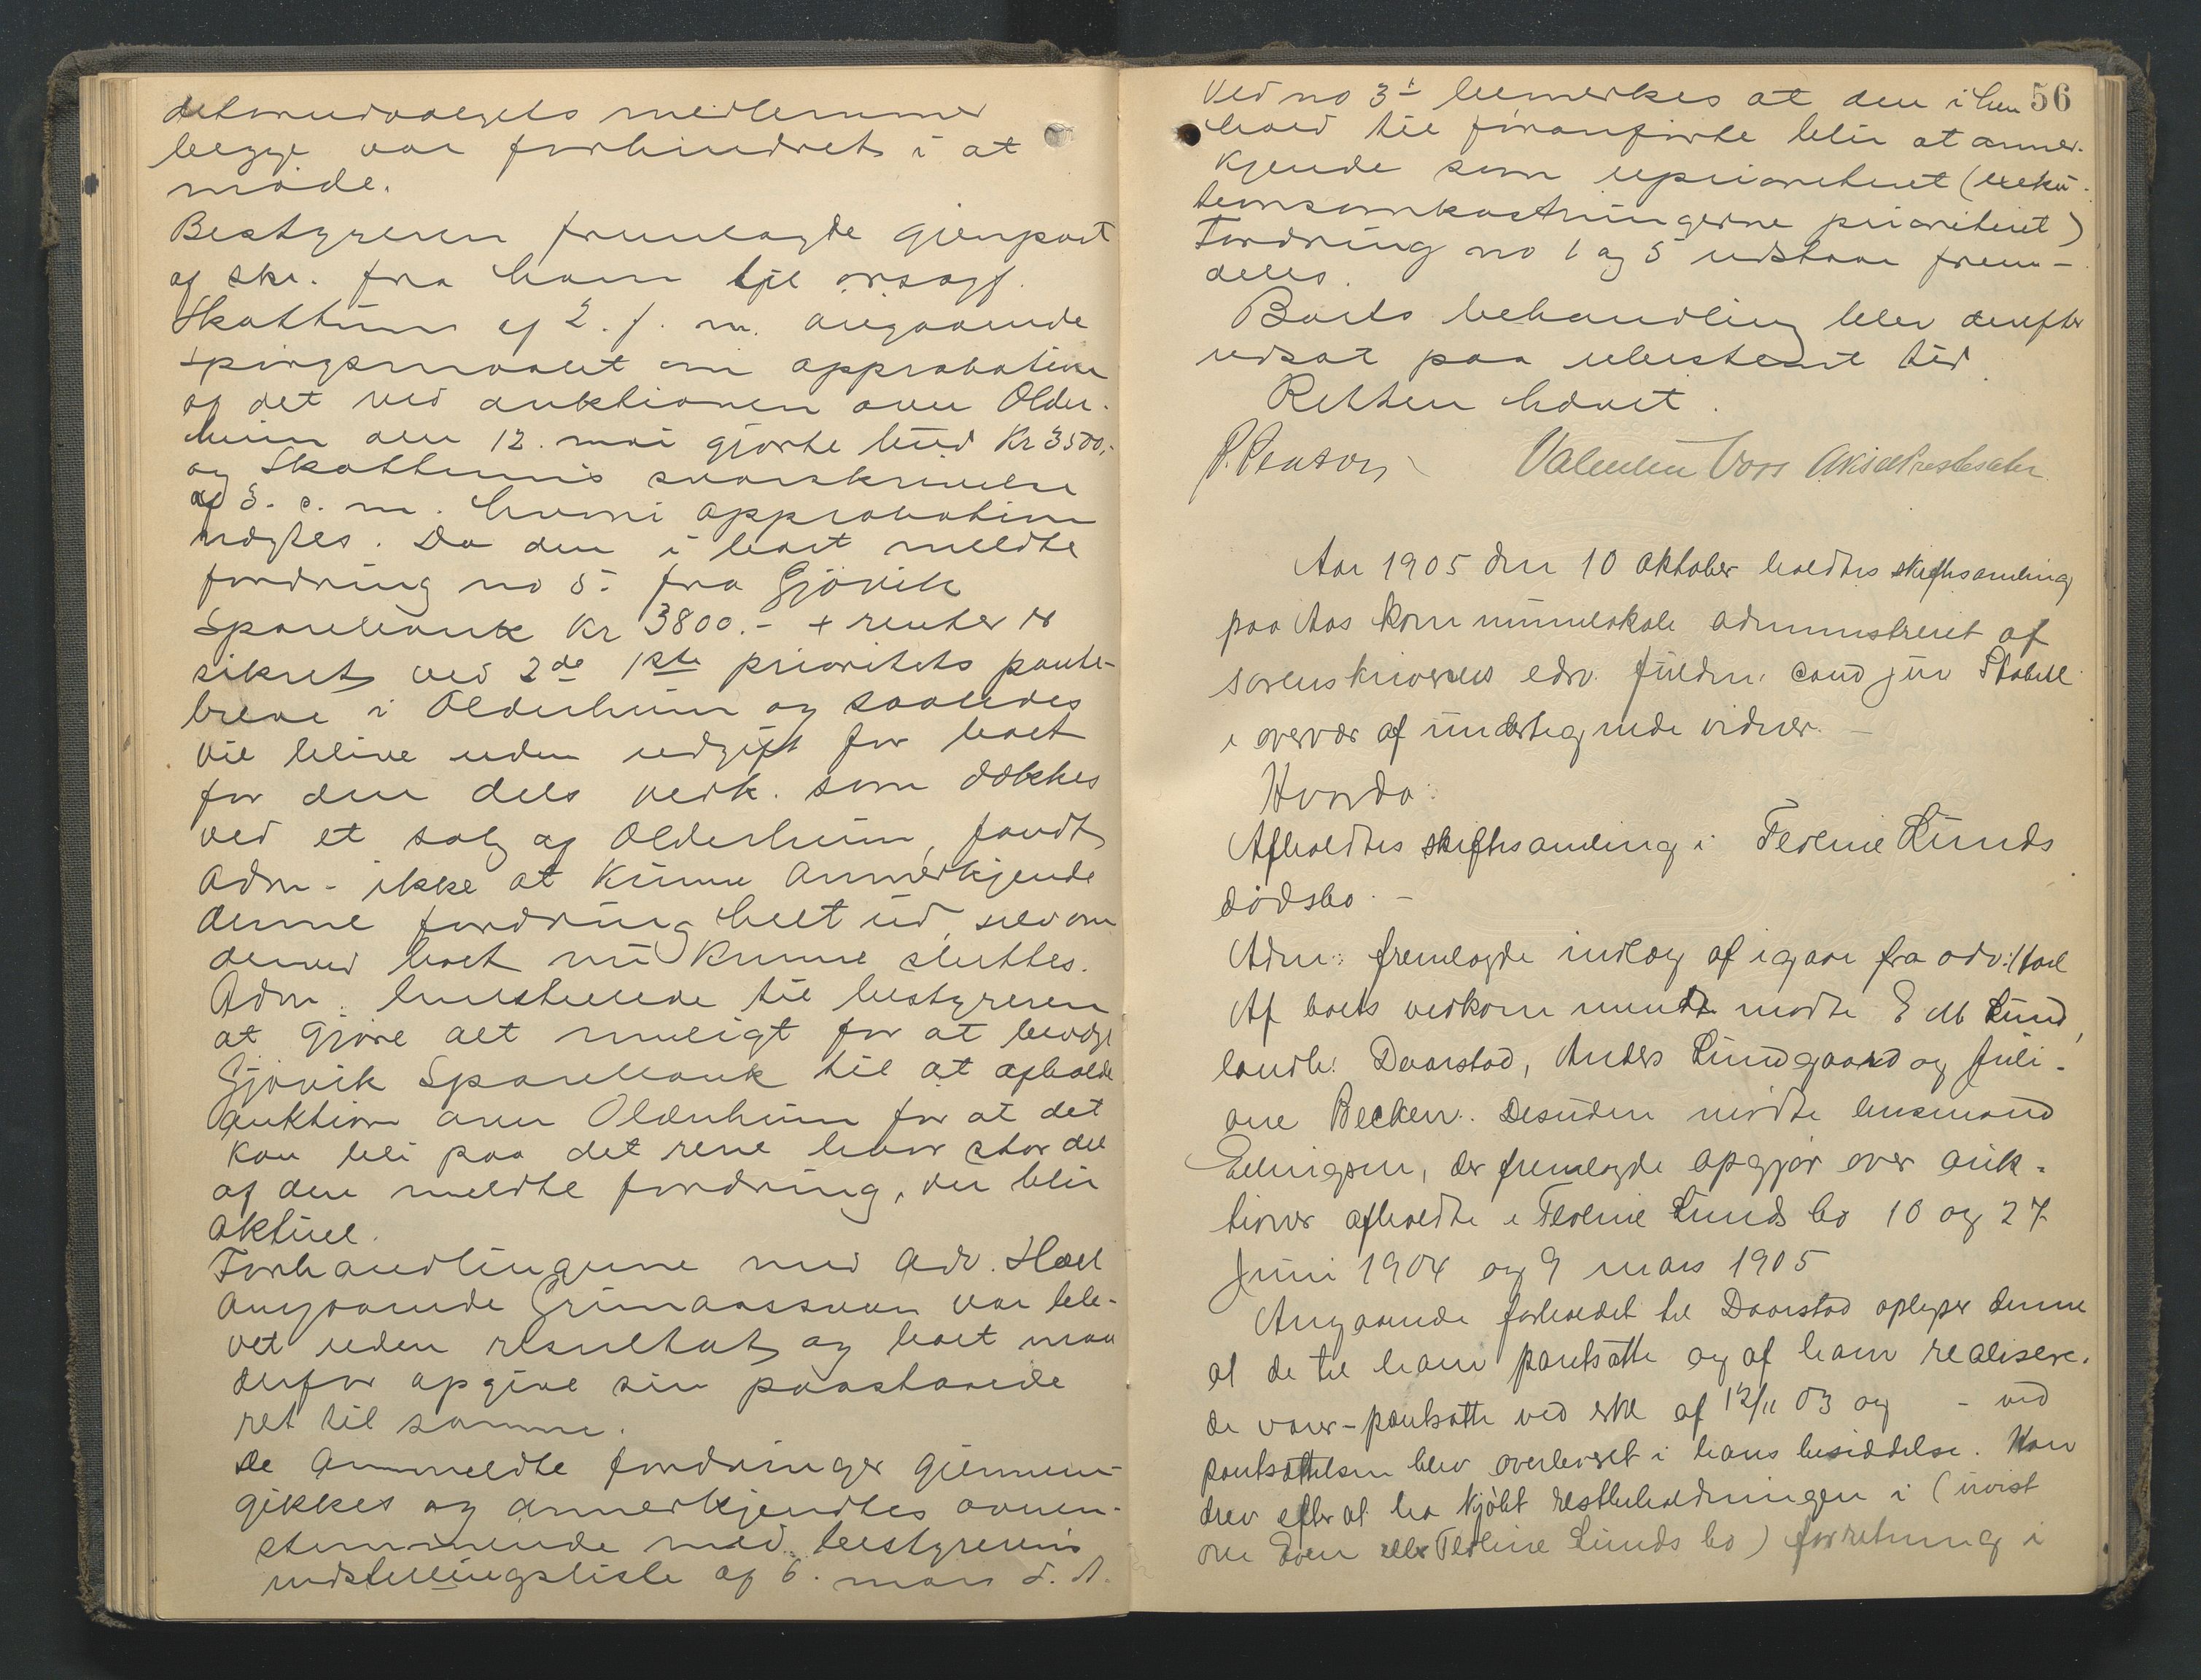 ditorudvalgets medlemmer
begge var forhindret i at
møde.
Bestyreren fremlagde gienpart
af skr. fra ham til orsagf.
Skattum af 2. f. m. angaaende
spørgsmaalet om approbation
af det ved auktionen over Older-
heim den 12. mai gjorte bud Kr 3500,-
og Skattums svarskrivelse
af 3. s. m. hvori approbation
nægtes. Da den i boet meldte
fordring no 5. fra Gjøvik
Sparebank Kr 3800.- + renter er
sikret ved 2de 1ste prioritets pante-
breve i Olderheim og saaledes
vil blive uden udgift for boet
for den dels vedk. som dækkes
ved et salg af Olderheim, fandt
Adm. ikke at kunne annerkjende
denne fordring helt ud, selv om
derved boet nu kunne sluttes.
Adm. henstillede til bestyreren
at gjøre alt muligt for at bevæge
Gjøvik Sparebank til at afholde
auktion over Olderheim for at det
kan bli paa det rene hvor stor del
af den meldte fordring, der blir
aktuel.
Forhandlingerne med Adv. Hoel
angaaende Grimaassveen var ble-
vet uden resultat, og boet maa
derfor opgive sin paastaaede
ret til samme.
De anmeldte fordringer gjennem-
gikkes og annerkjendtes overen-
stemmende med bestyrerens
indstillingsliste af 6. mars d. A.
Ved no 3 bemerkes at den i hen- 56
hold til foranførte blir at anner-
kjende som uprioriteret (exeku-
tionsomkostningerne prioriteret)
Fordring no 1 og 5 udstaar frem-
deles.
Boets behandling blev derefter
udsat paa ubestemt tid.
Retten hævet.
Valentin Voss
Aar 1905 den 10 oktober holdtes skiftesamling
paa Aas kommunelokale administreret af
sorenskriverens edsv. fuldm. cand jur
i overvær af undertegnede vidner. –
Hvorda:
Afholdtes skiftesamling i Terline Lunds
dødsbo. –
Adm: fremlagde indlæg af igaar fra adv: Hoel
Af boets vedkommende mødte E M Lund,
landh: Daarstad, Anders Lundgaard og Juli-
ane Becken. Desuden mødte lensmand
Ellingsen, der fremlagde opgjør over auk-
tioner afholdte i Terline Lunds bo 10 og 27
Juni 1904 og 9 mars 1905
Angaaende forholdet til Daarstad oplyser denne
at de til ham pantsatte og af ham realisere-
de varer – pantsatte ved skr af 12/11 03 og – ved
pantsættelsen blev overleveret i hans besiddelse. Han
drev efter at ha kjøbt restbeholdningen i (uvist
om Even eller Terline Lunds bo) forretning i